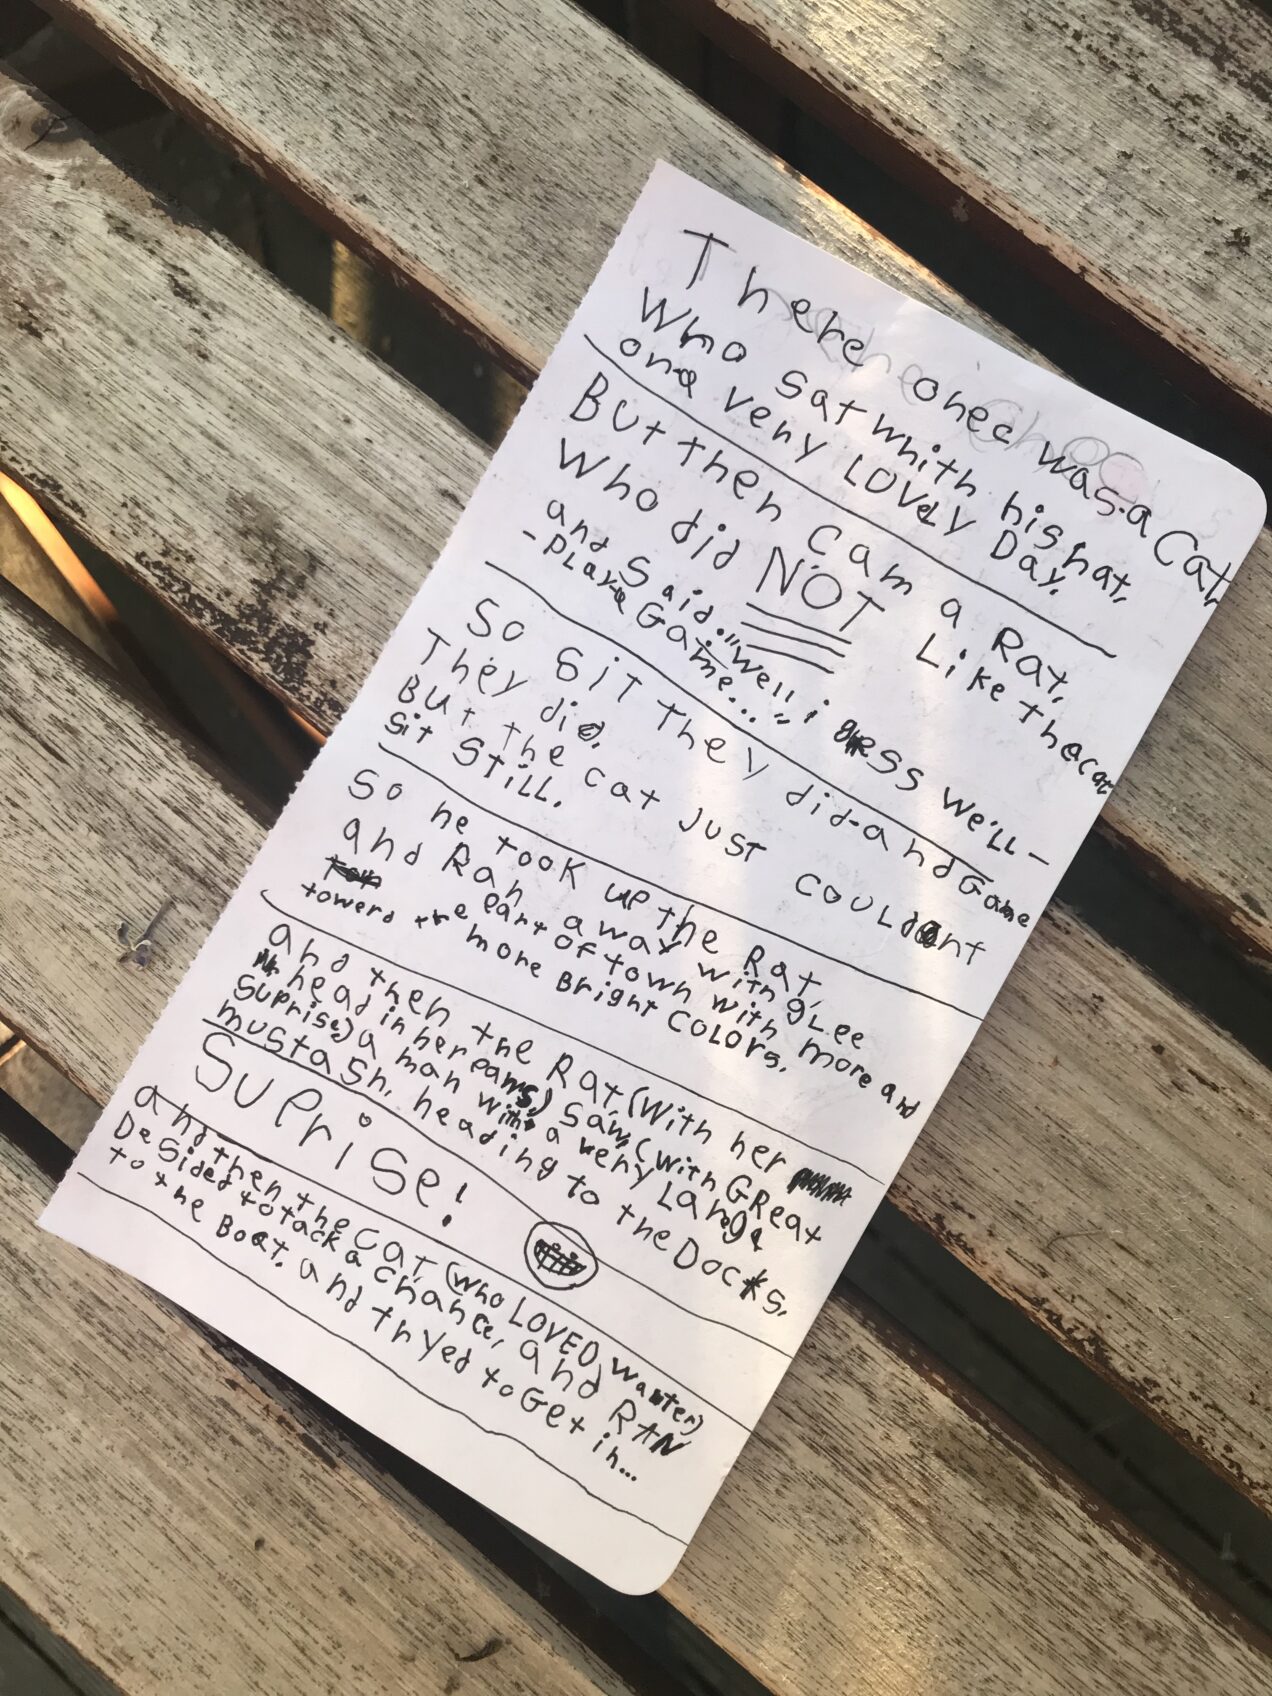 There onec was a Cat,
Who sat whith his hat,
on a very LOVeLy Day.
BUt then cam a Rat,
Who did NOT Like the cat
and Said: "Well i gess we'll-
-pLay a Game..."
So Sit they did-and Game
They did.
BUt the cat JUST COULdnt
Sit STiLL.
So he took up the Rat,
and Ran away with gLee
toward the part of town with more and
more Bright COLOrs.
and then the Rat, (With her
head in her eams) Saw, (with GReat
SUprise) a man with a very Large
mustash, heading to the Docks.
SUPriSe!
and then the Cat, (who LOVED Water)
DeSided to tack a Chance, and RAN
to the Boat. and tryed to Get in...